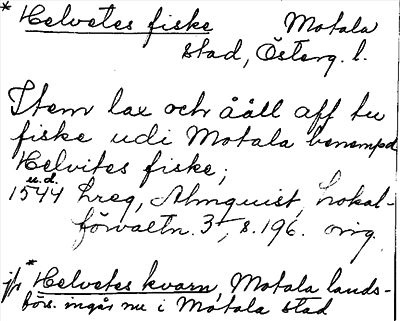 * Helvetes fiske Motala
stad, Österg. l.
Item lax och ååll aff tu
fiske udi Motala benempd
Helvites fiske;
u.d.
1544 Lreg, Almquist, Lokal-
förvaltn. 3, s. 196. orig.
jfr * Helvetes kvarn, Motala lands-
förs. ingår nu i Motala stad